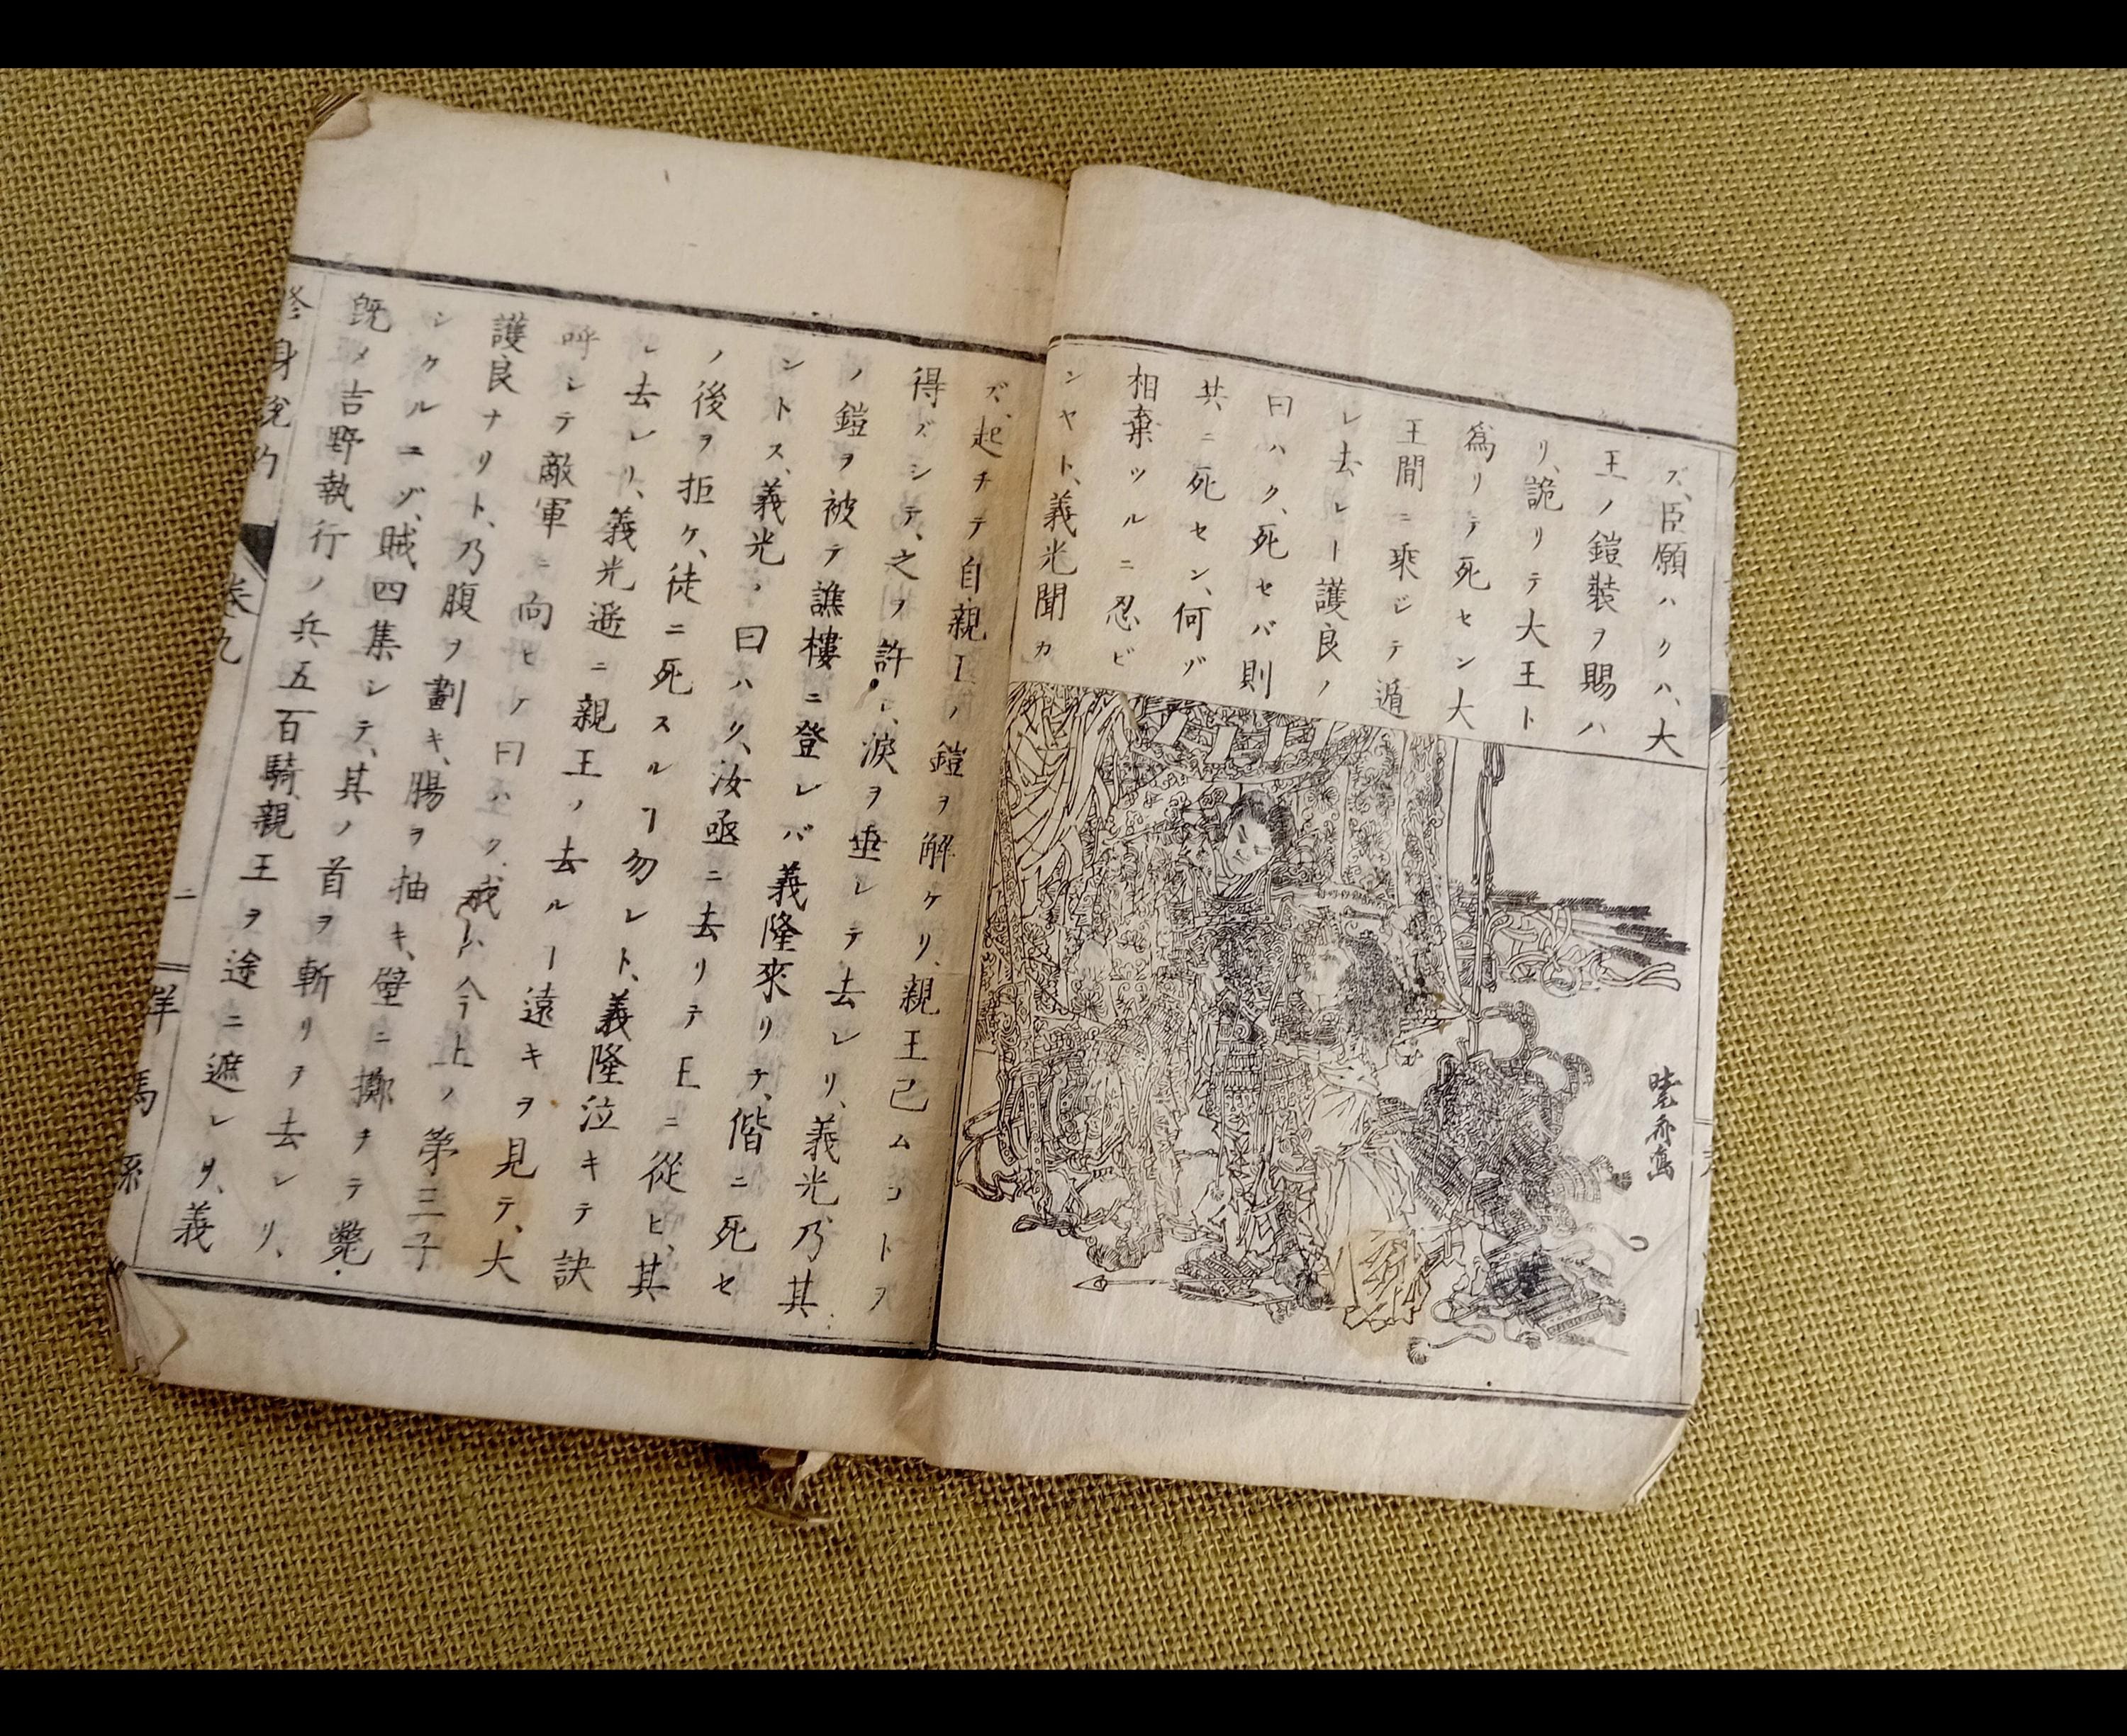 ズ、臣願ハクハ、大
王ノ鎧裝ヲ賜ハ
リ、詭リテ大王ト
爲リテ死セン大
王間ニ乘ジテ遁
レ去レー護良ノ
曰ハク、死セバ則
共ニ死セン、何ゾ
相棄ツルニ忍ビ
ンヤト、義光聞カ
曉斎画
ズ、起チテ自親王ノ鎧ヲ解ケリ、親王已ムコトヲ
得ズシテ、之ヲ許シ、淚ヲ垂レテ去レリ、義光乃其
ノ鎧ヲ被テ譙樓ニ登レバ義隆來リテ、偕ニ死セ
ントス、義光、曰ハク、汝亟ニ去リテ王ニ從ヒ、其
ノ後ヲ拒ケ、徒ニ死スルヿ勿レト、義隆泣キテ訣
レ去レリ、義光遥ニ親王ノ去ルー遠キヲ見テ、大
呼シテ敵軍ニ向ヒテ曰ハク、我ハ今上ノ第三子
護良ナリト、乃腹ヲ劃キ、腸ヲ抽キ、壁ニ擲チテ斃
シケルニゾ、賊四集シテ、其ノ首ヲ斬リテ去レリ、
既メ吉野執行ノ兵五百騎親王ヲ途ニ遮レリ、義
修身說約 卷九 二